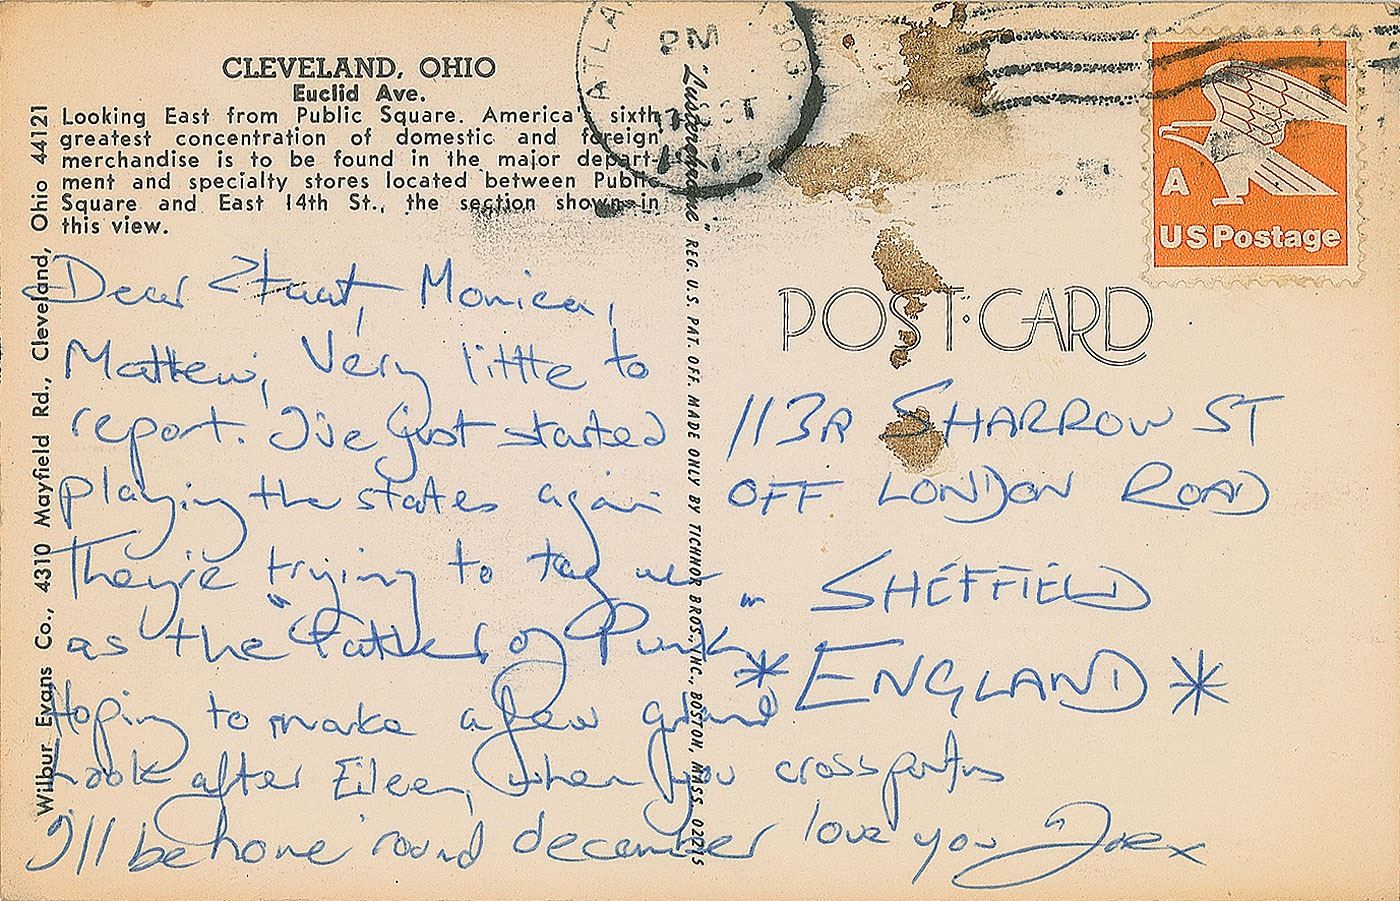 CLEVELAND, OHIO
Euclid Ave.
Looking East from Public Square. America's sixth
greatest concentration of domestic and foreign
merchandise is to be found in the major depart-
ment and specialty stores located between Public
Square and East 14th St., the section shown in
this view.
Wilbur Evans Co., 4310 Mayfield Rd., Cleveland, Ohio 44121
Dear Stuart, Monica,
Mattew, Very little to
report. I've just started
playing the states again
They're trying to tag me
as the "Father of Punk"
Hoping to make a few grand
Look after Eileen, when you cross paths
I'll be home 'round december love you Joe x
"Lusterchrome" REG. U.S. PAT. OFF. MADE ONLY BY TICHNOR BROS., INC., BOSTON, MASS. 02215
ATLA
PM
A
US Postage
POST CARD
113A SHARROW ST
OFF LONDON ROAD
SHEFFIELD
*ENGLAND*